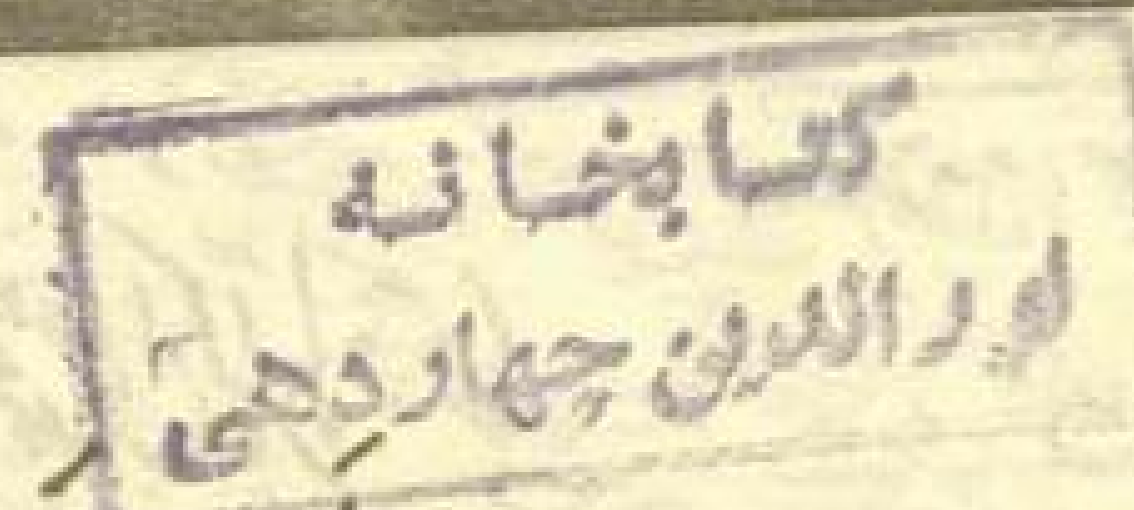 کتابخانه
نورالدین چهاردهی